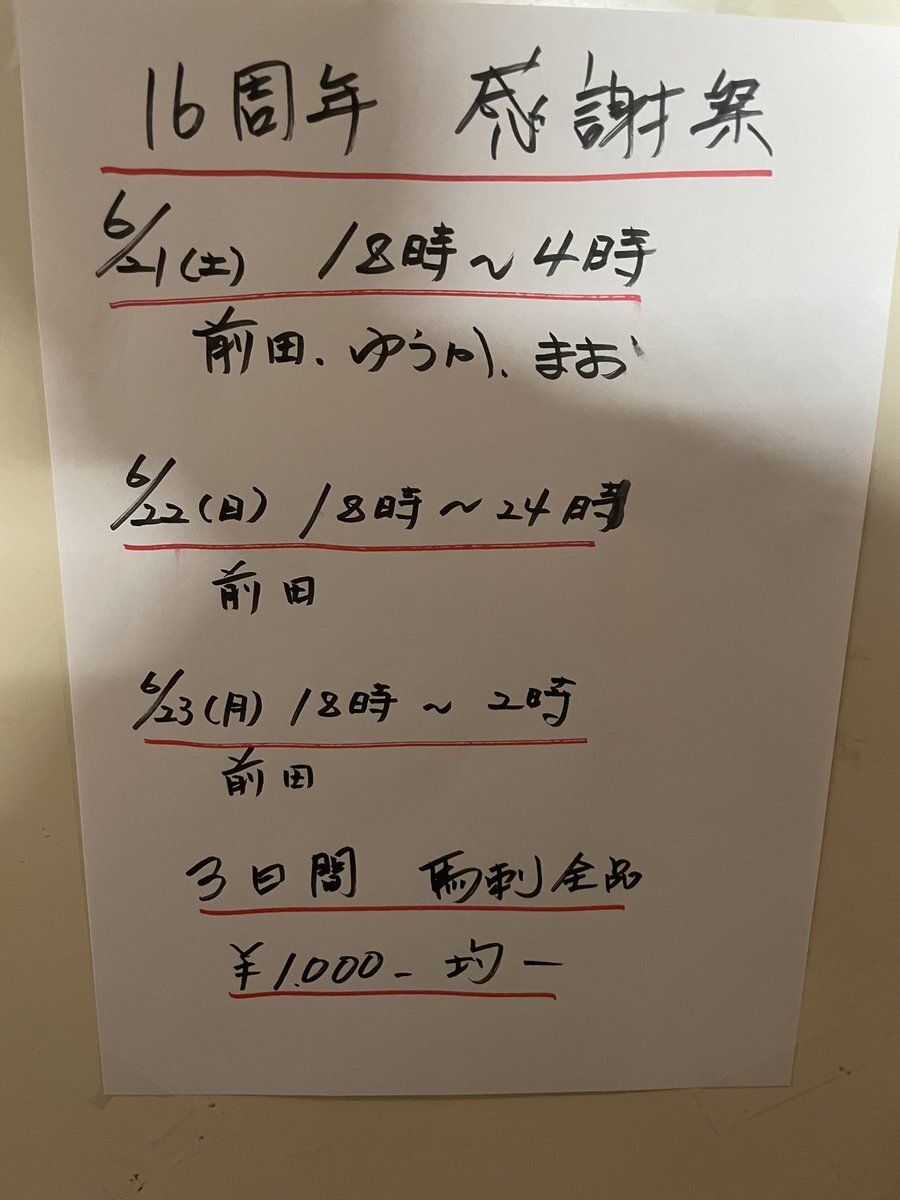 16周年 感謝祭
6/21(土) 18時~4時
前田、ゆうか、まお
6/22(日) 18時~24時
前田
6/23(月) 18時~2時
前田
3日間 馬刺全品
¥1,000- 均一